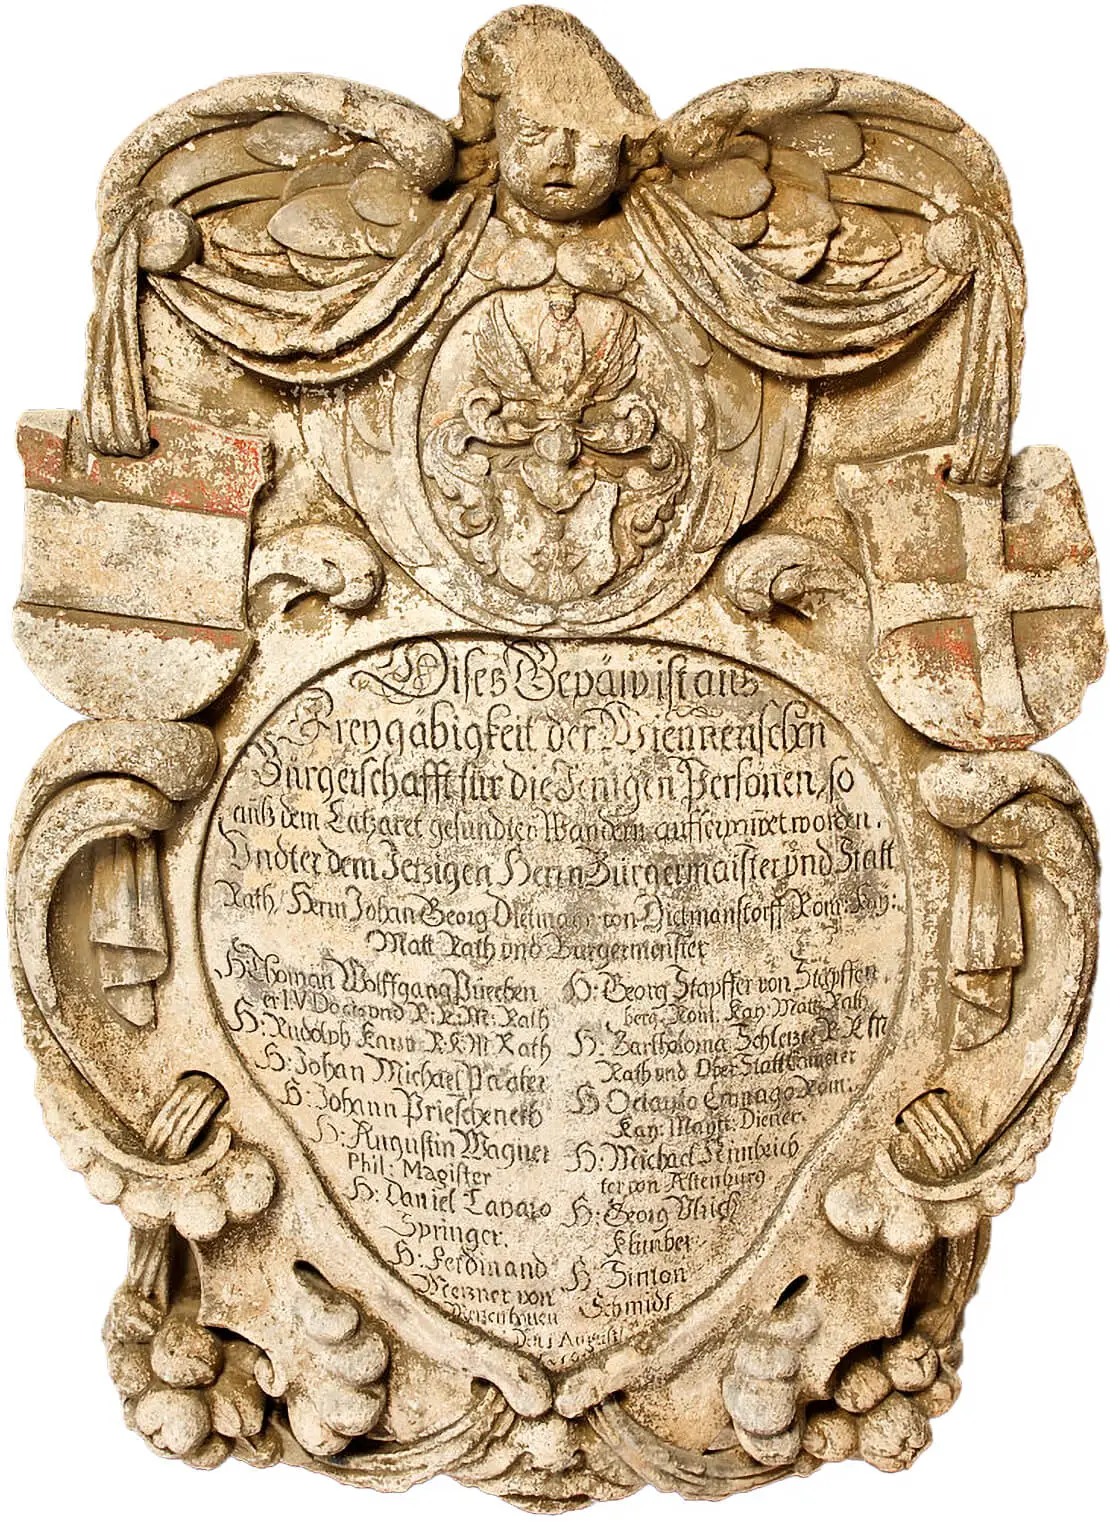 Dises Gepäw ist aus
Freygäbigkeit der Wieñerischen
Burgerschafft für die Jenigen Persönen, so
auß dem Latzaret gesundter Wandern aufferpawet worden.
Undter dem Jetzigen Herrn Burgermaister und Statt
Rath, Herrn Johan Georg Dietmayr von Dietmanstorff Röm: Kay:
Matt Rath und Burgermeister
H: Thoman Wolffgang Puechen
er I.V. Doctor und R: K: M: Rath
H: Rudolph R: K: M Rath
H: Johan Michael
H: Johann
H: Augustin Wagner
Phil: Magister
H: Daniel Lavaro
Springer.
H: Ferdinand
Mezner von
H: Georg Stapffer von Stapffen
berg Röm: Kay: Matt: Rath
H: Bartholoma Schlezer R K M
Rath und Ober Statt
H Octavio Röm:
Kay: Mayt: Diener.
H: Michael
ter von Altenburg
H: Georg Ulrich
H Simon
Schmidt
Den 1 August